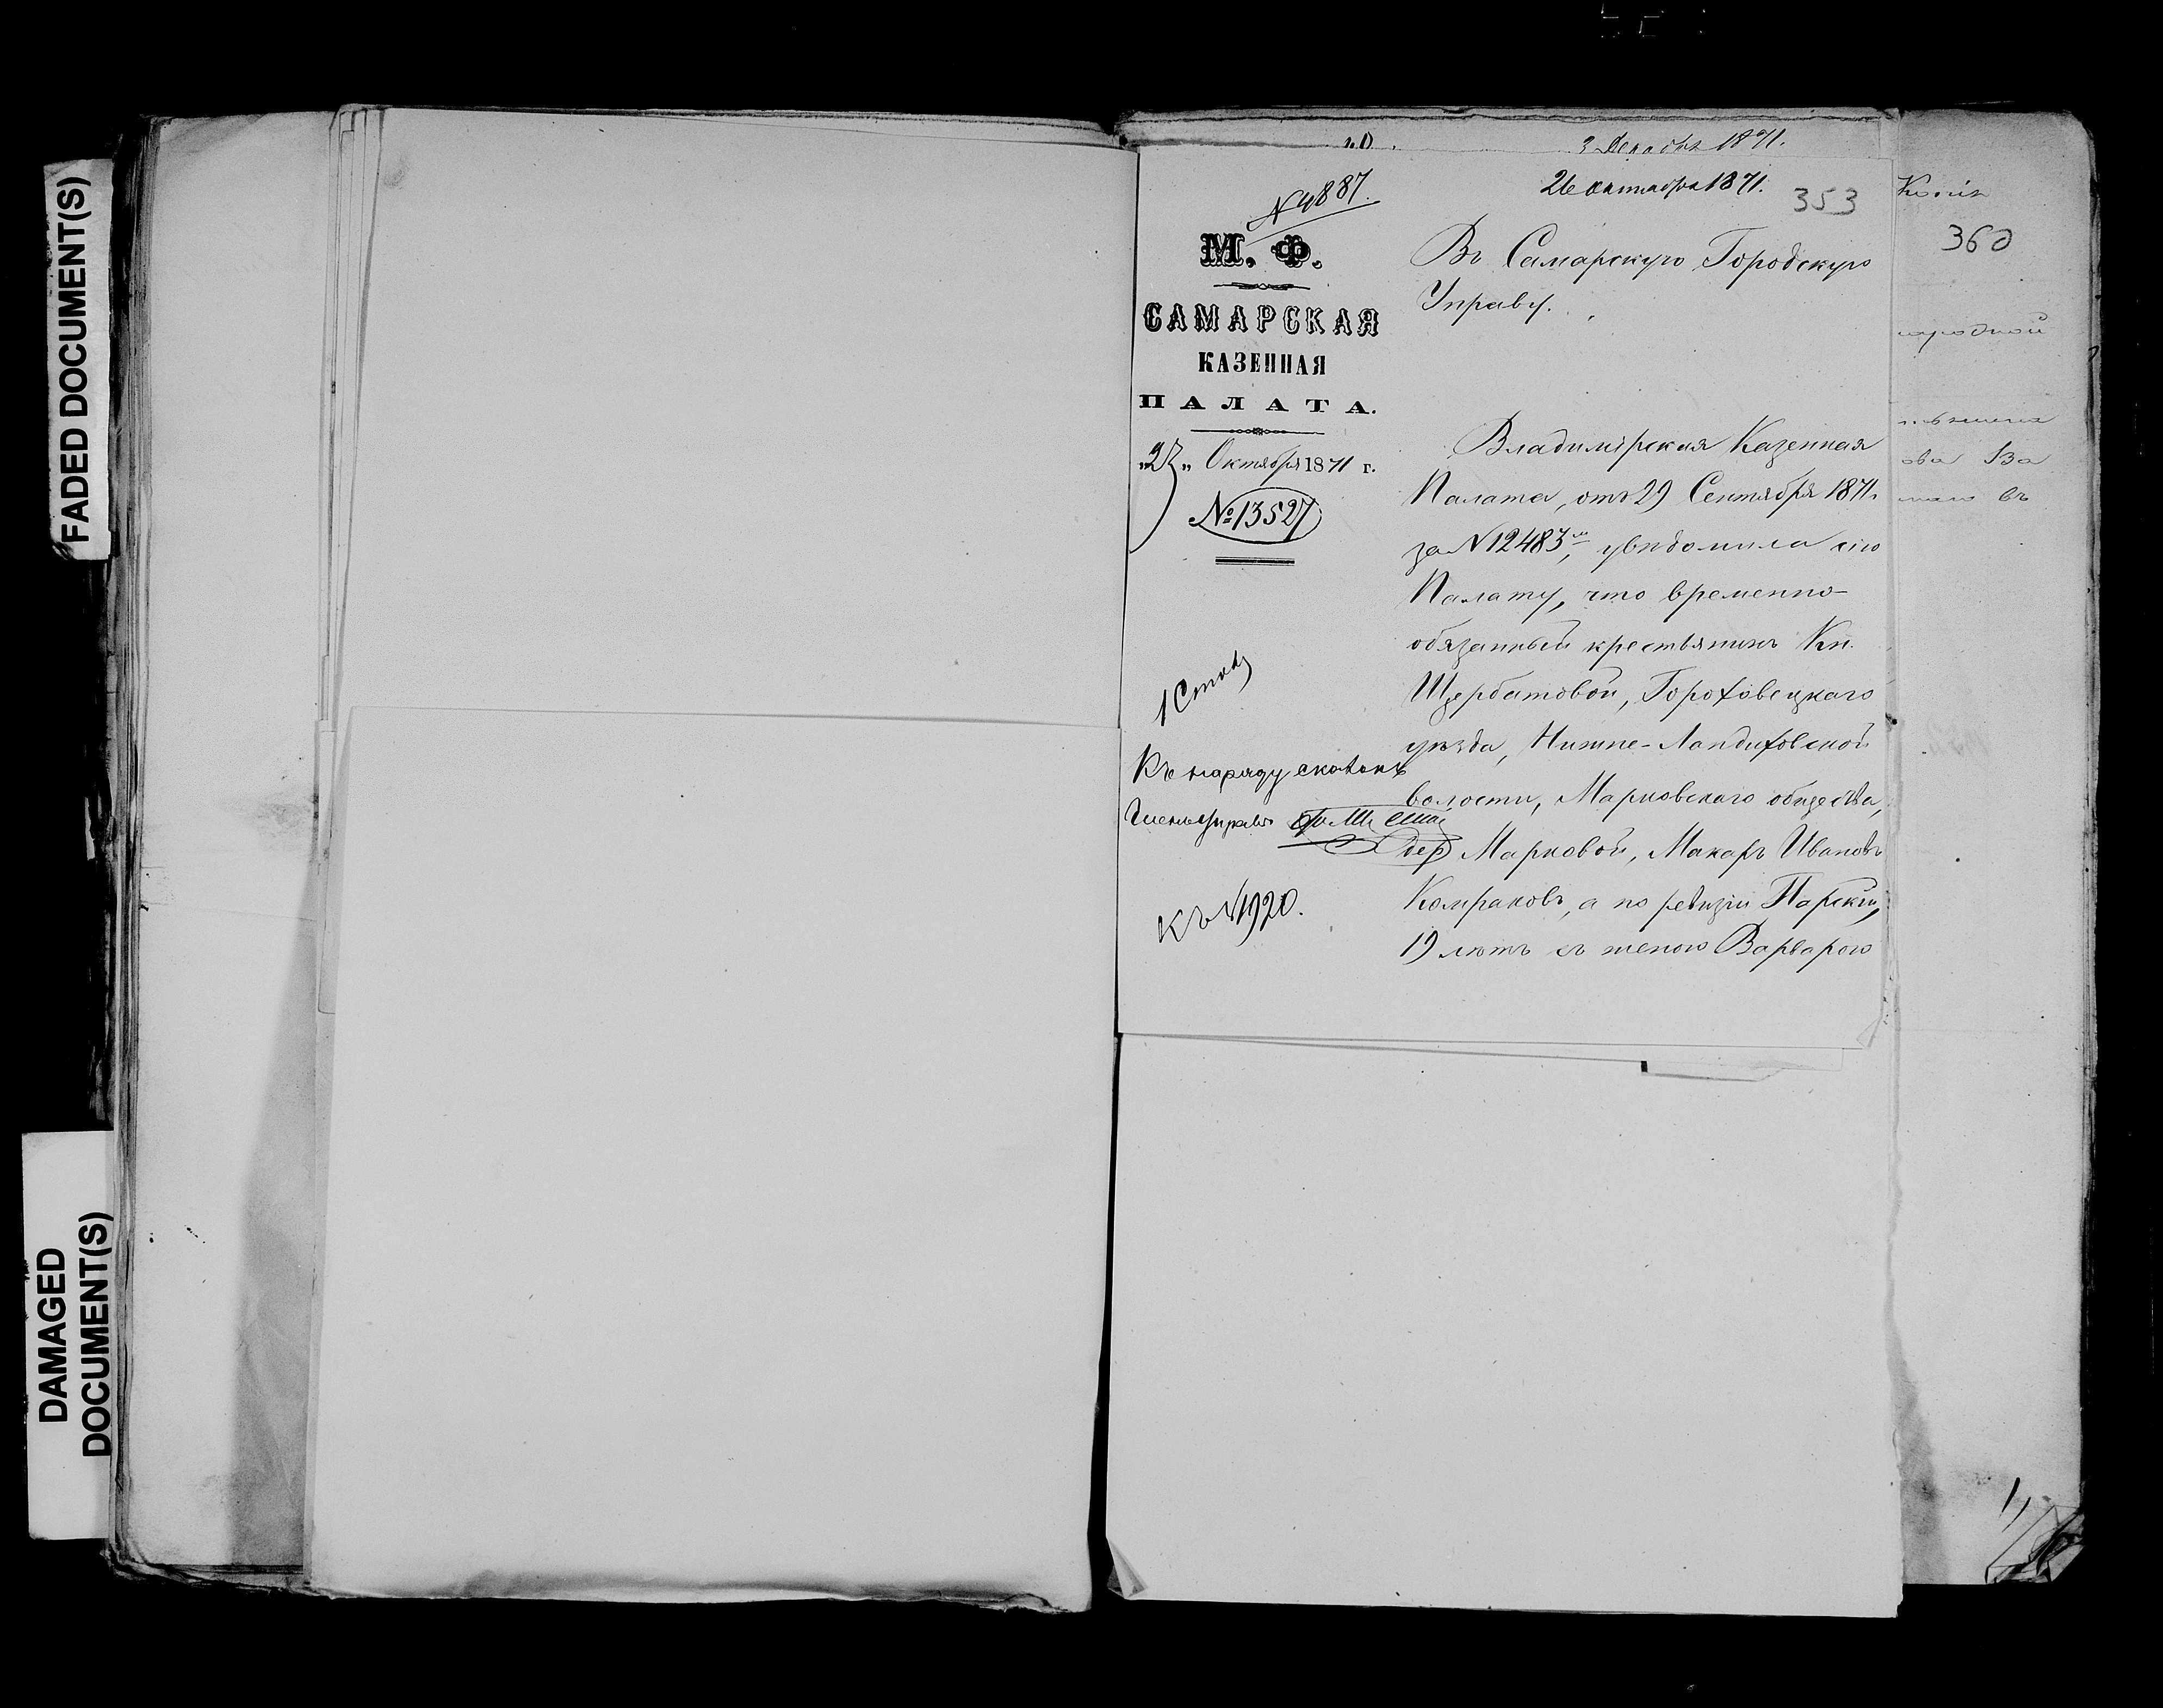 FADED DOCUMENT(S)
DAMAGED
DOCUMENT(S)
3 Декабря 1871.
26 октября 1871.
353
№ 4887.
М. Ф.
САМАРСКАЯ
КАЗЕННАЯ
ПАЛАТА.
„23„ Октября 1871 г.
№ 13527
1 Столъ
Къ наряду
Членъ Управы
Къ № 1920.
Въ Самарскую Городскую
Управу.
Владимірская Казенная
Палата, отъ 29 Сентября 1871 г.
за № 12483, увѣдомила сію
Палату, что временно-
обязанный крестьянинъ Кн.
Щербатовой, Гороховецкаго
уѣзда, Нижне-Ландиховской
волости, Марковскаго общества,
дер. Марковой, Макаръ Ивановъ
Комраковъ, а по ревизіи Парскій,
19 лѣтъ съ женою Варварою
Копія
360
ова Ва
въ